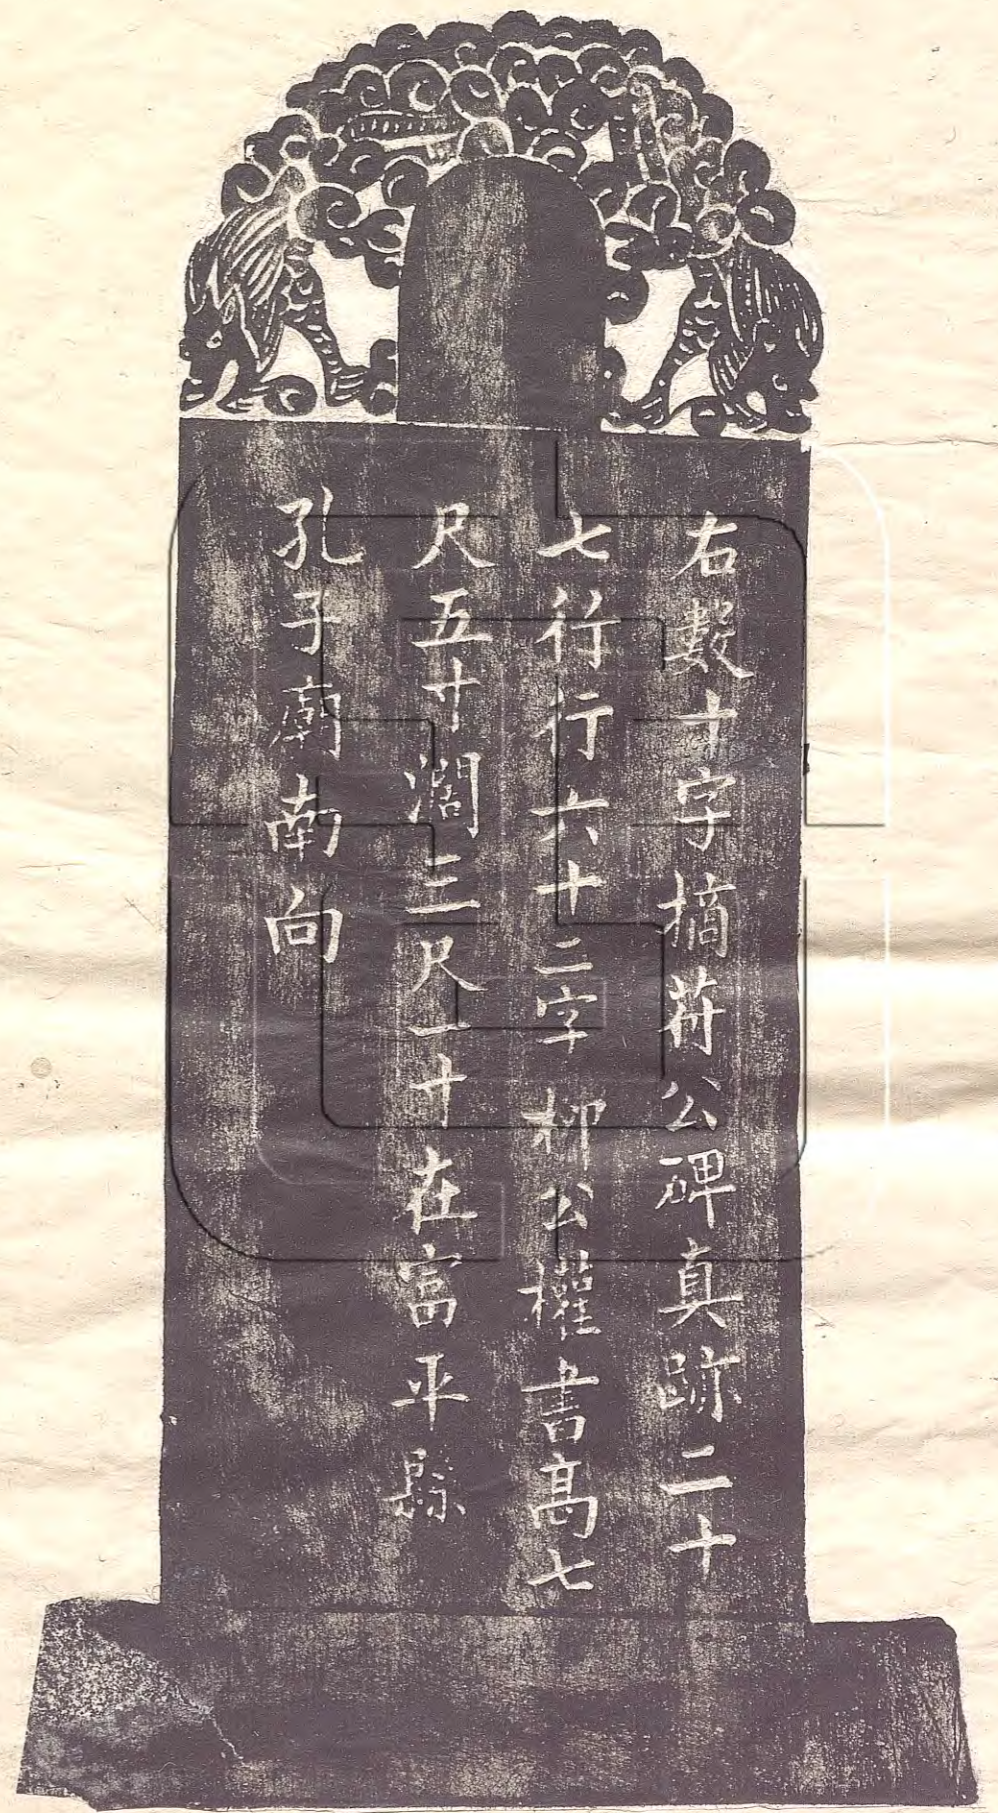 右數十字摘苻公碑真跡二十
七行行六十二字柳公權書高七
尺五寸濶三尺一寸在富平縣
孔子廟南向